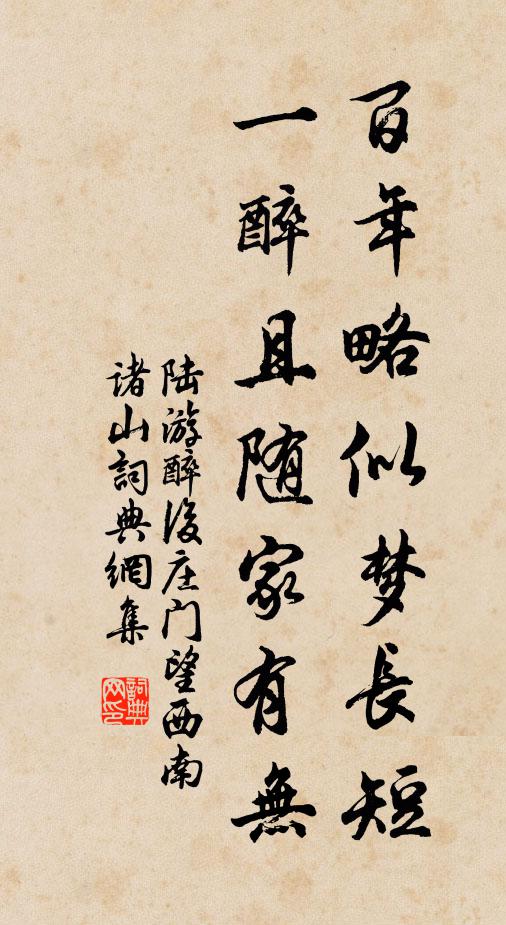 百年略似梦長短
一醉且随家有無
陆游醉後庄门望西南
诸山詞典網集
詞典
网印